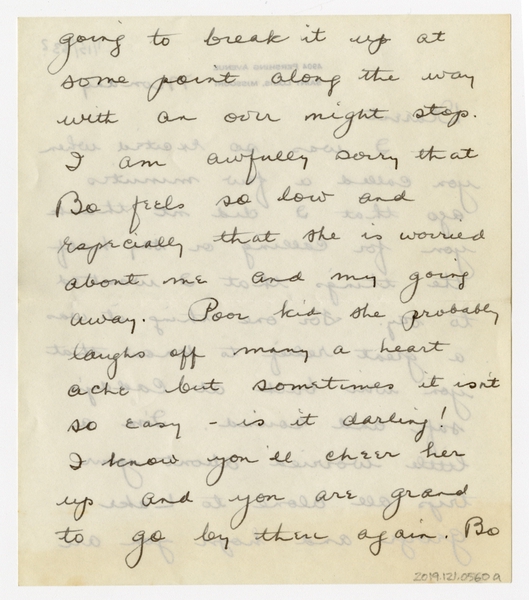 going to break it up at
some point along the way
with an over night stop.
I am awfully sorry that
Bo feels so low and
especially that she is worried
about me and my going
away. Poor kid she probably
laughs off many a heart
ache but sometimes it isn't
so easy – is it darling!
I know you'll cheer her
up and you are grand
to go by there again. Bo
2019.121.0560a